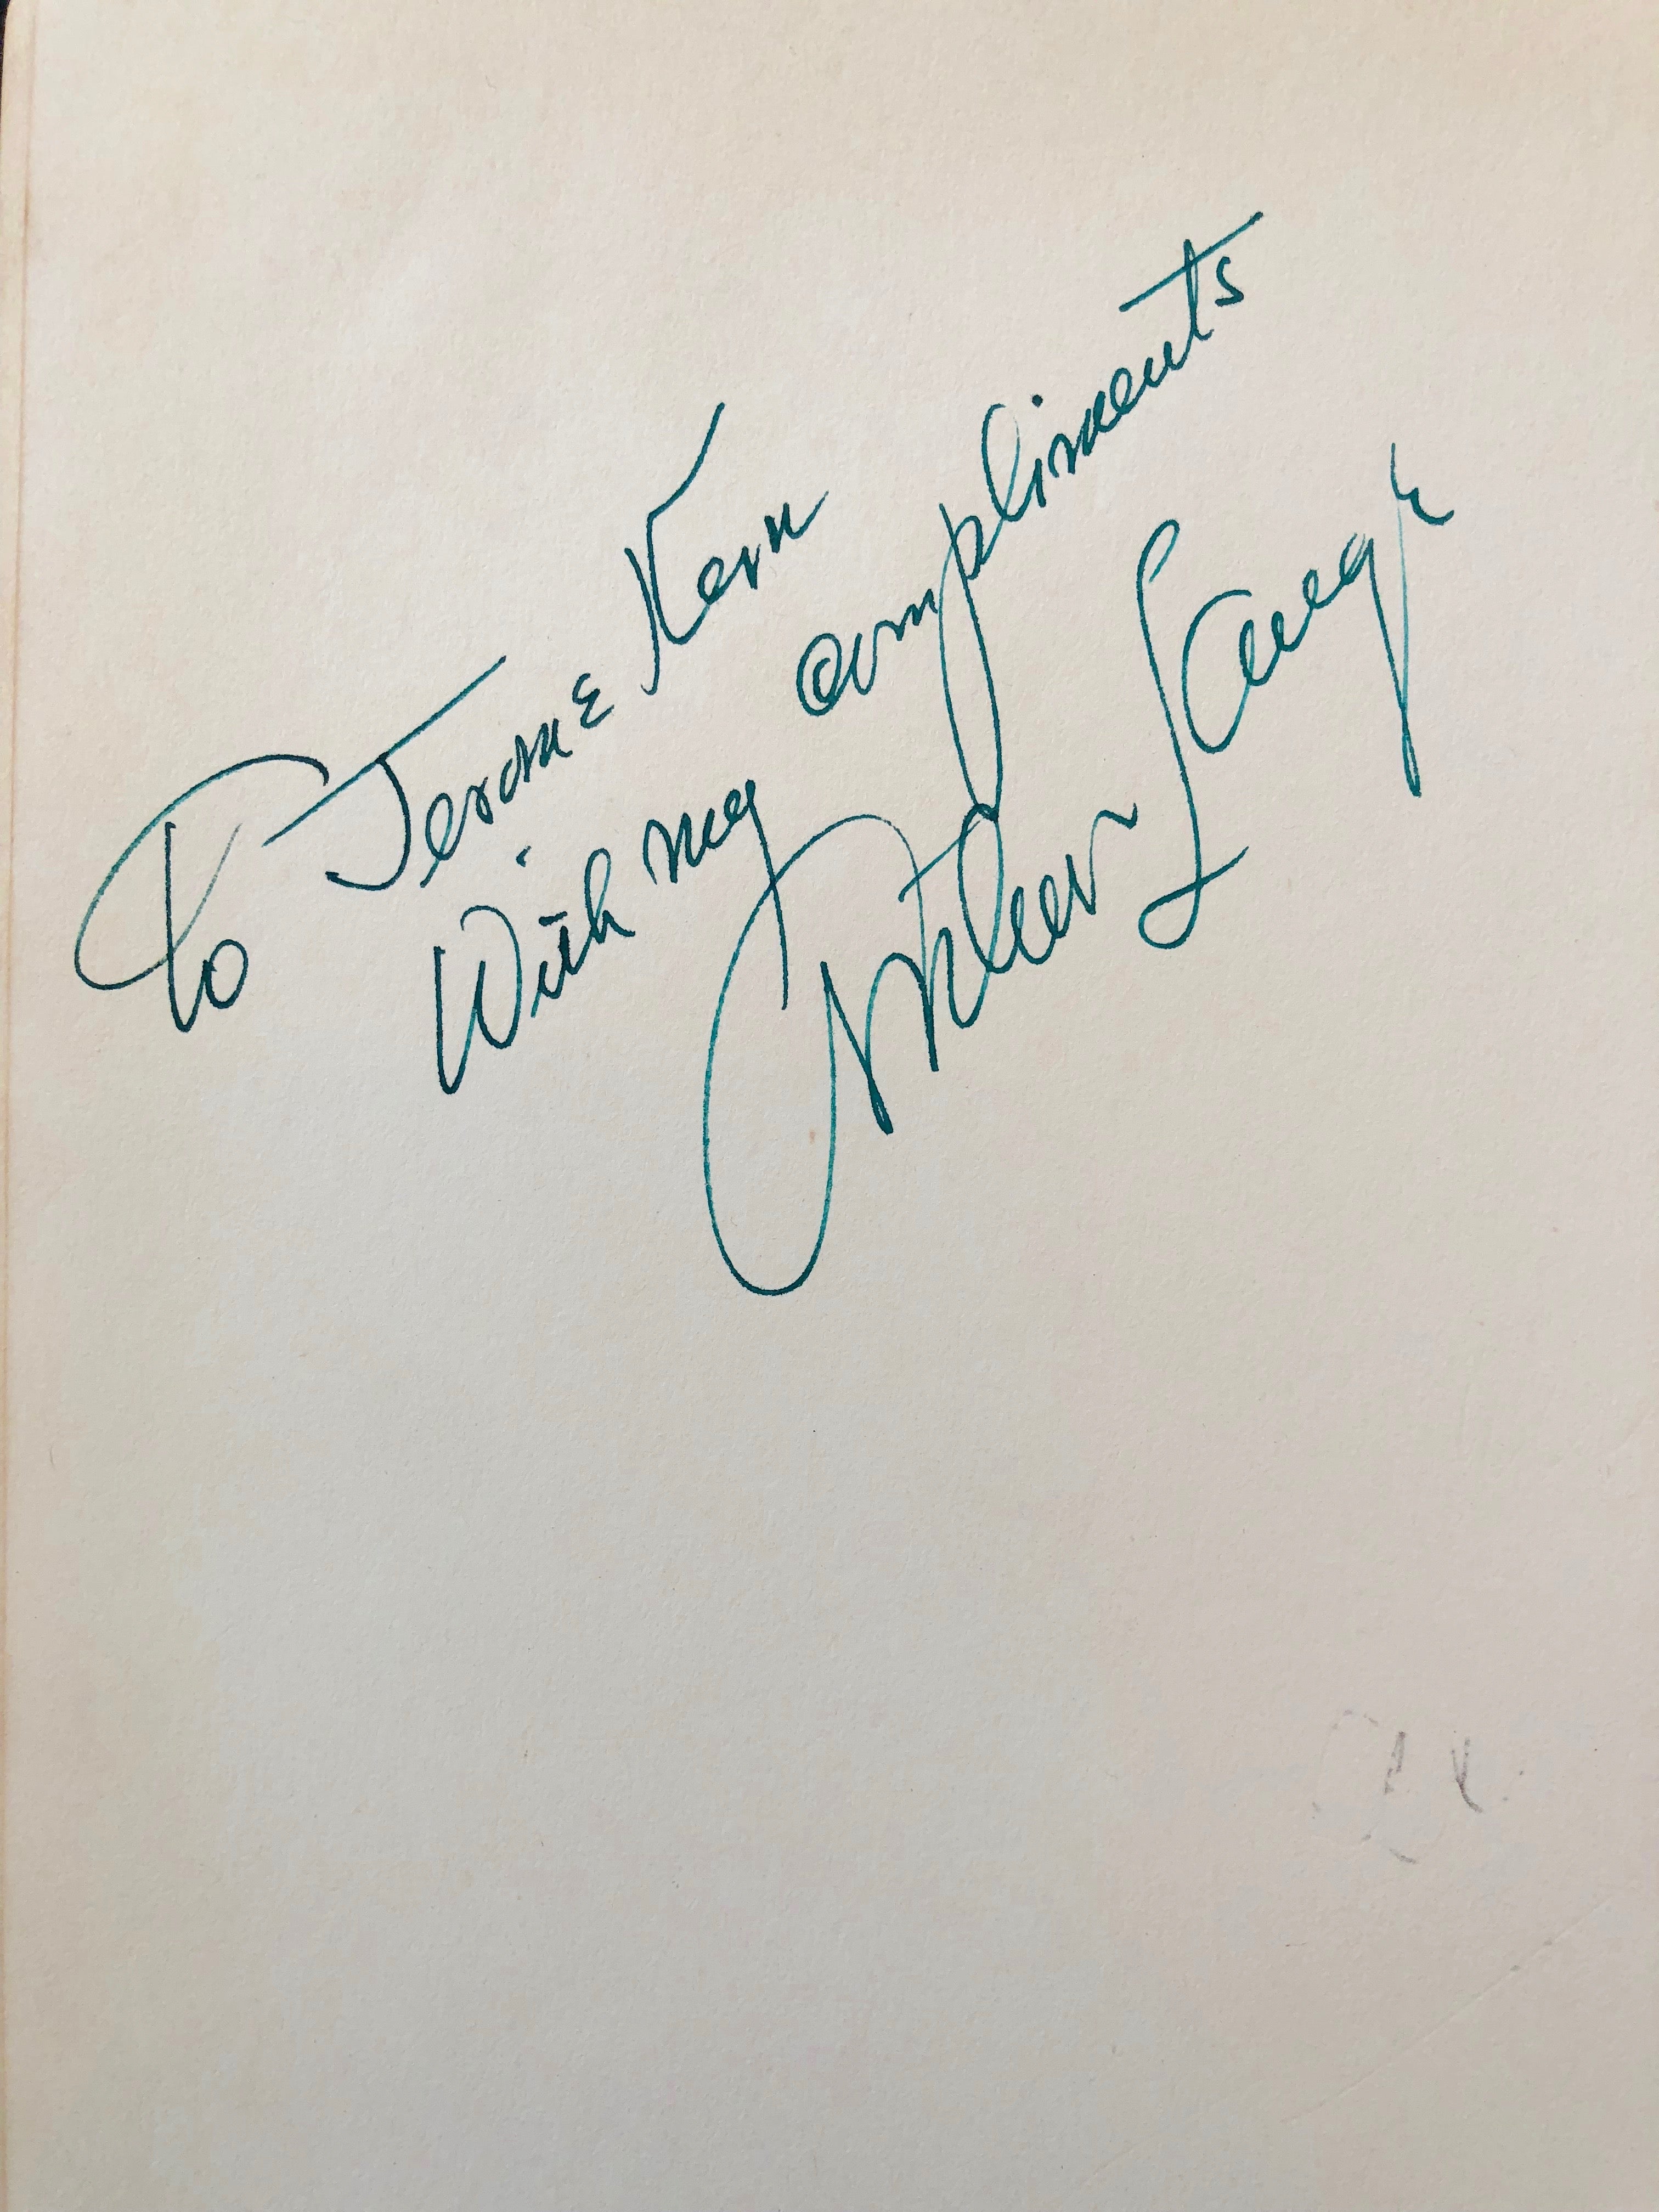 To Jerome Kern
With my compliments
Arthur Lange